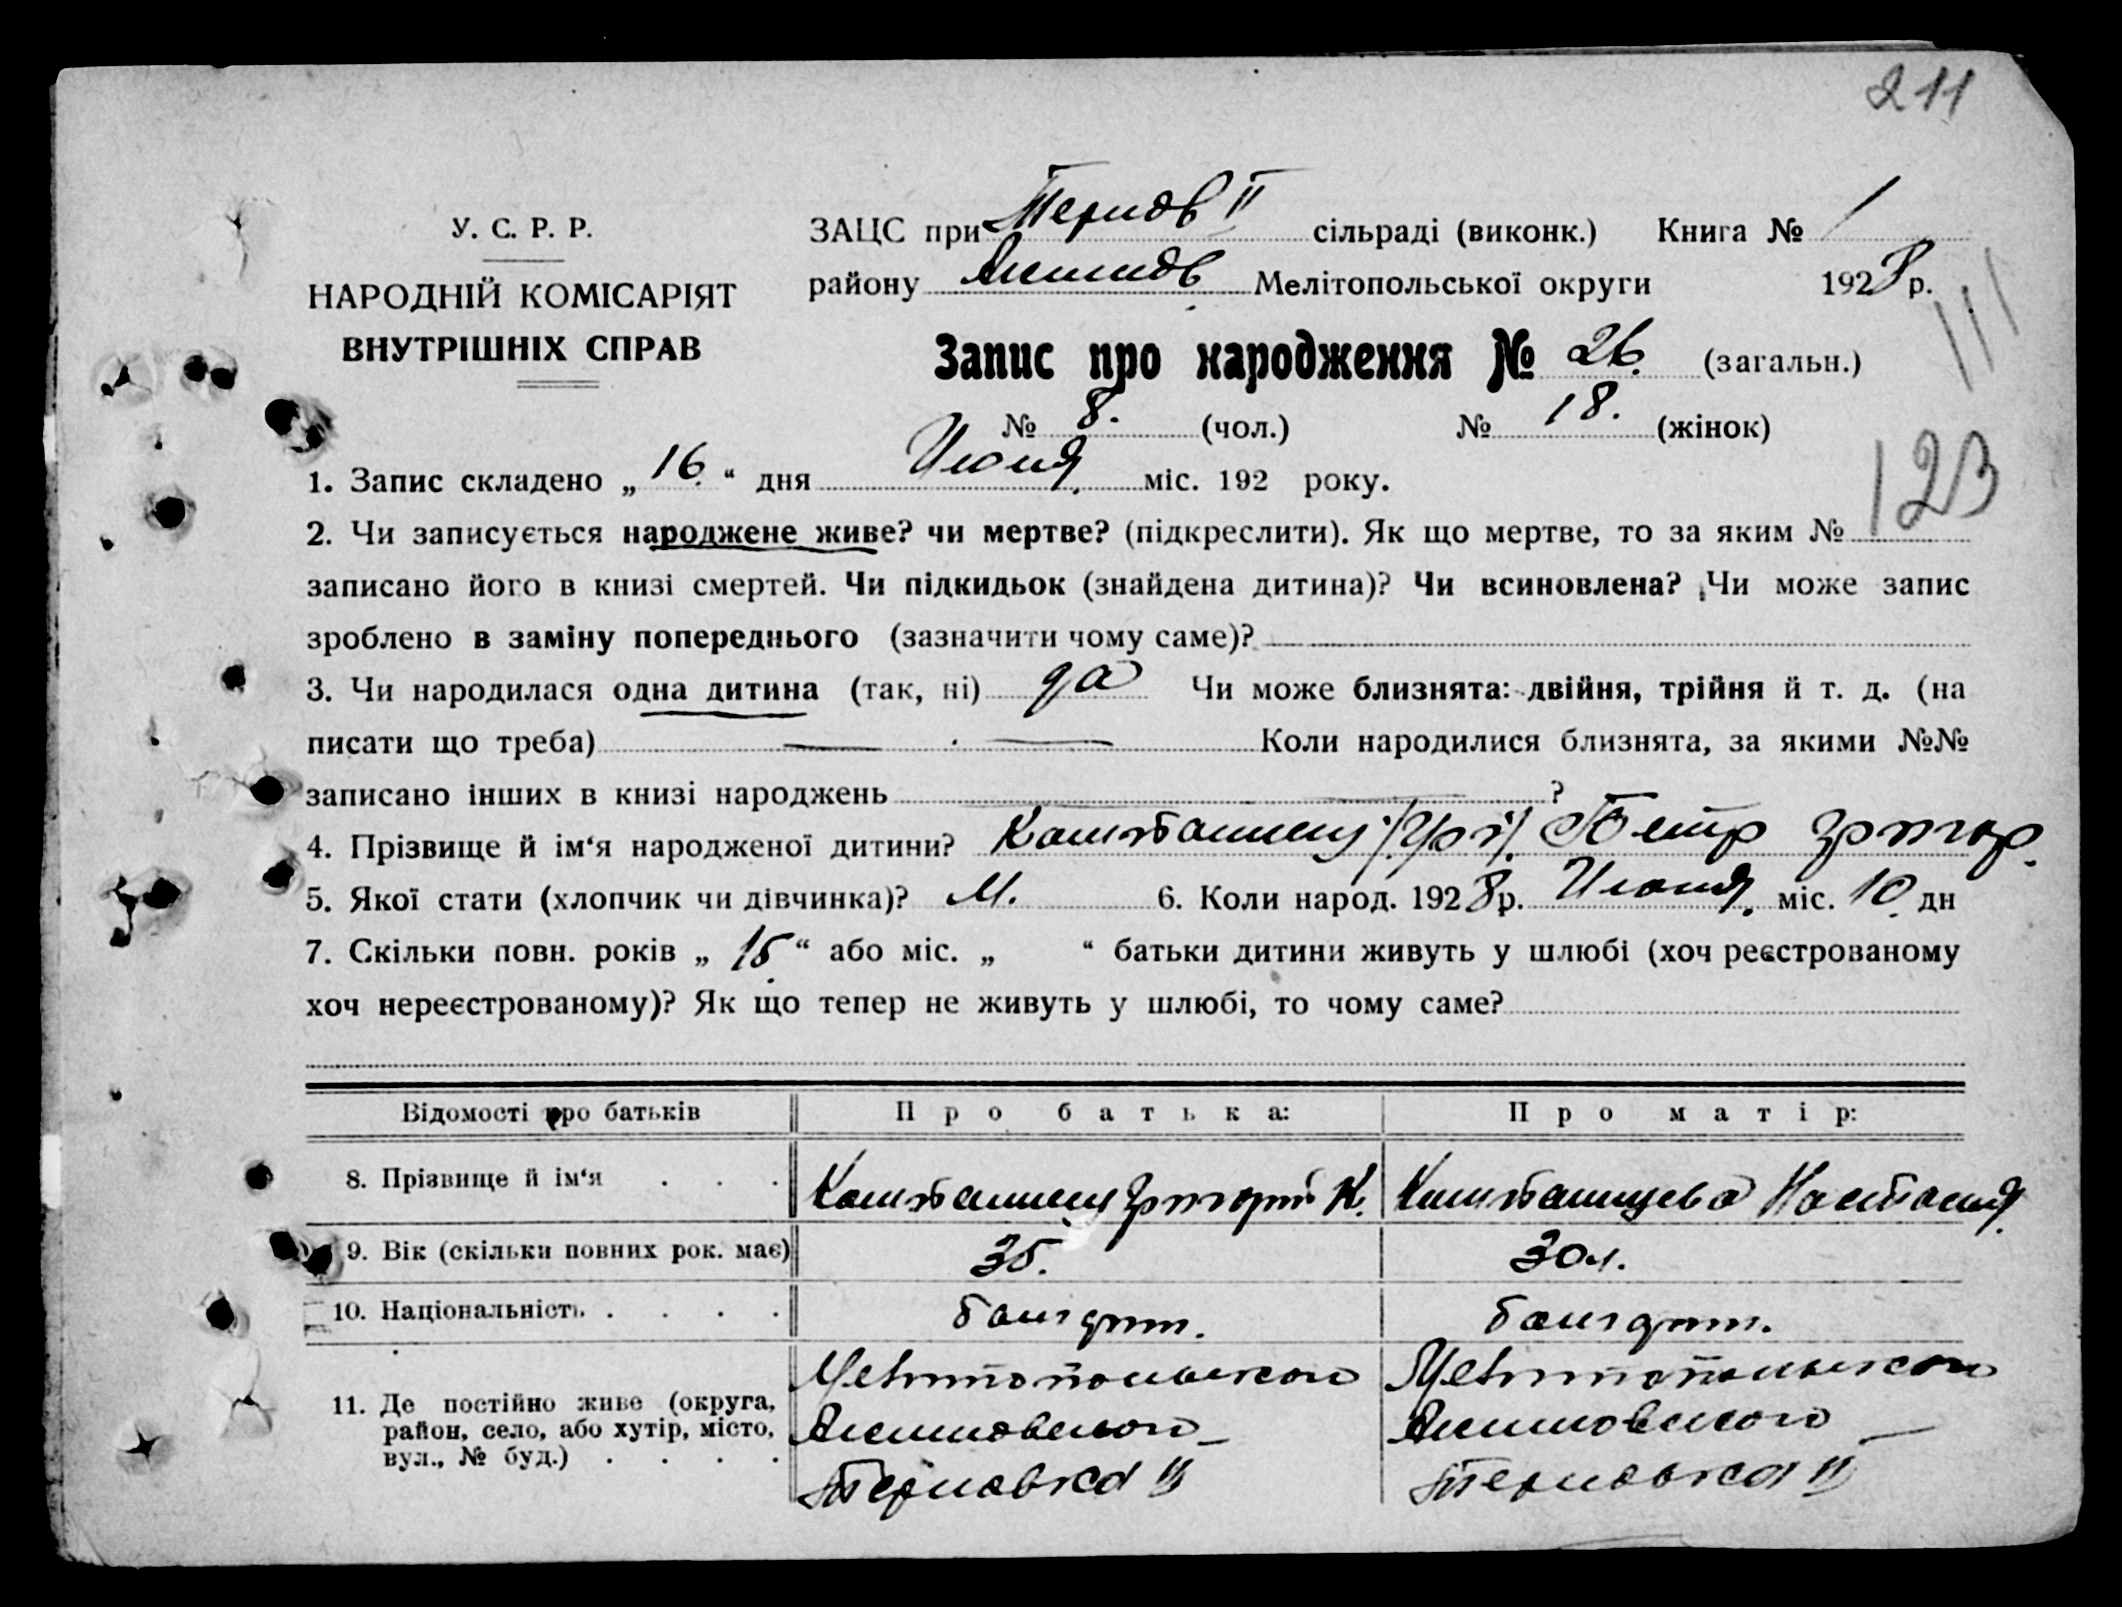 211
У. С. Р. Р.
НАРОДНІЙ КОМІСАРІЯТ
ВНУТРІШНІХ СПРАВ
ЗАЦС при Тернов II сільраді (виконк.) Книга № 1
району Акимов Мелітопольської округи 1928 р.
Запис про народження № 26. (загальн.)
№ 8. (чол.) № 18. (жінок)
123
1. Запис складено „ 16 “ дня Июня міс. 192 року.
2. Чи записується народжене живе? чи мертве? (підкреслити). Як що мертве, то за яким №
записано його в книзі смертей. Чи підкидьок (знайдена дитина)? Чи всиновлена? Чи може запис
зроблено в заміну попереднього (зазначити чому саме)?
3. Чи народилася одна дитина (так, ні) да Чи може близнята: двійня, трійня й т. д. (на
писати що треба) Коли народилися близнята, за якими №№
записано інших в книзі народжень ?
4. Прізвище й ім‘я народженої дитини? Петр Григор.
5. Якої стати (хлопчик чи дівчинка)? М. 6. Коли народ. 1928 р. Июня міс. 10 дн
7. Скільки повн. років „ 15 “ або міс. „ “ батьки дитини живуть у шлюбі (хоч реєстрованому
хоч нереєстрованому)? Як що тепер не живуть у шлюбі, то чому саме?
Відомості про батьків Про батька: Про матір:
8. Прізвище й ім‘я Григорий К. Настасия
9. Вік (скільки повних рок. має) 35. 30 л.
10. Національність болгарин. болгарин.
11. Де постійно живе (округа, район, село, або хутір, місто, вул., № буд.)
Мелитопольского Мелитопольского
Акимовского Акимовского
Терновка II Терновка II